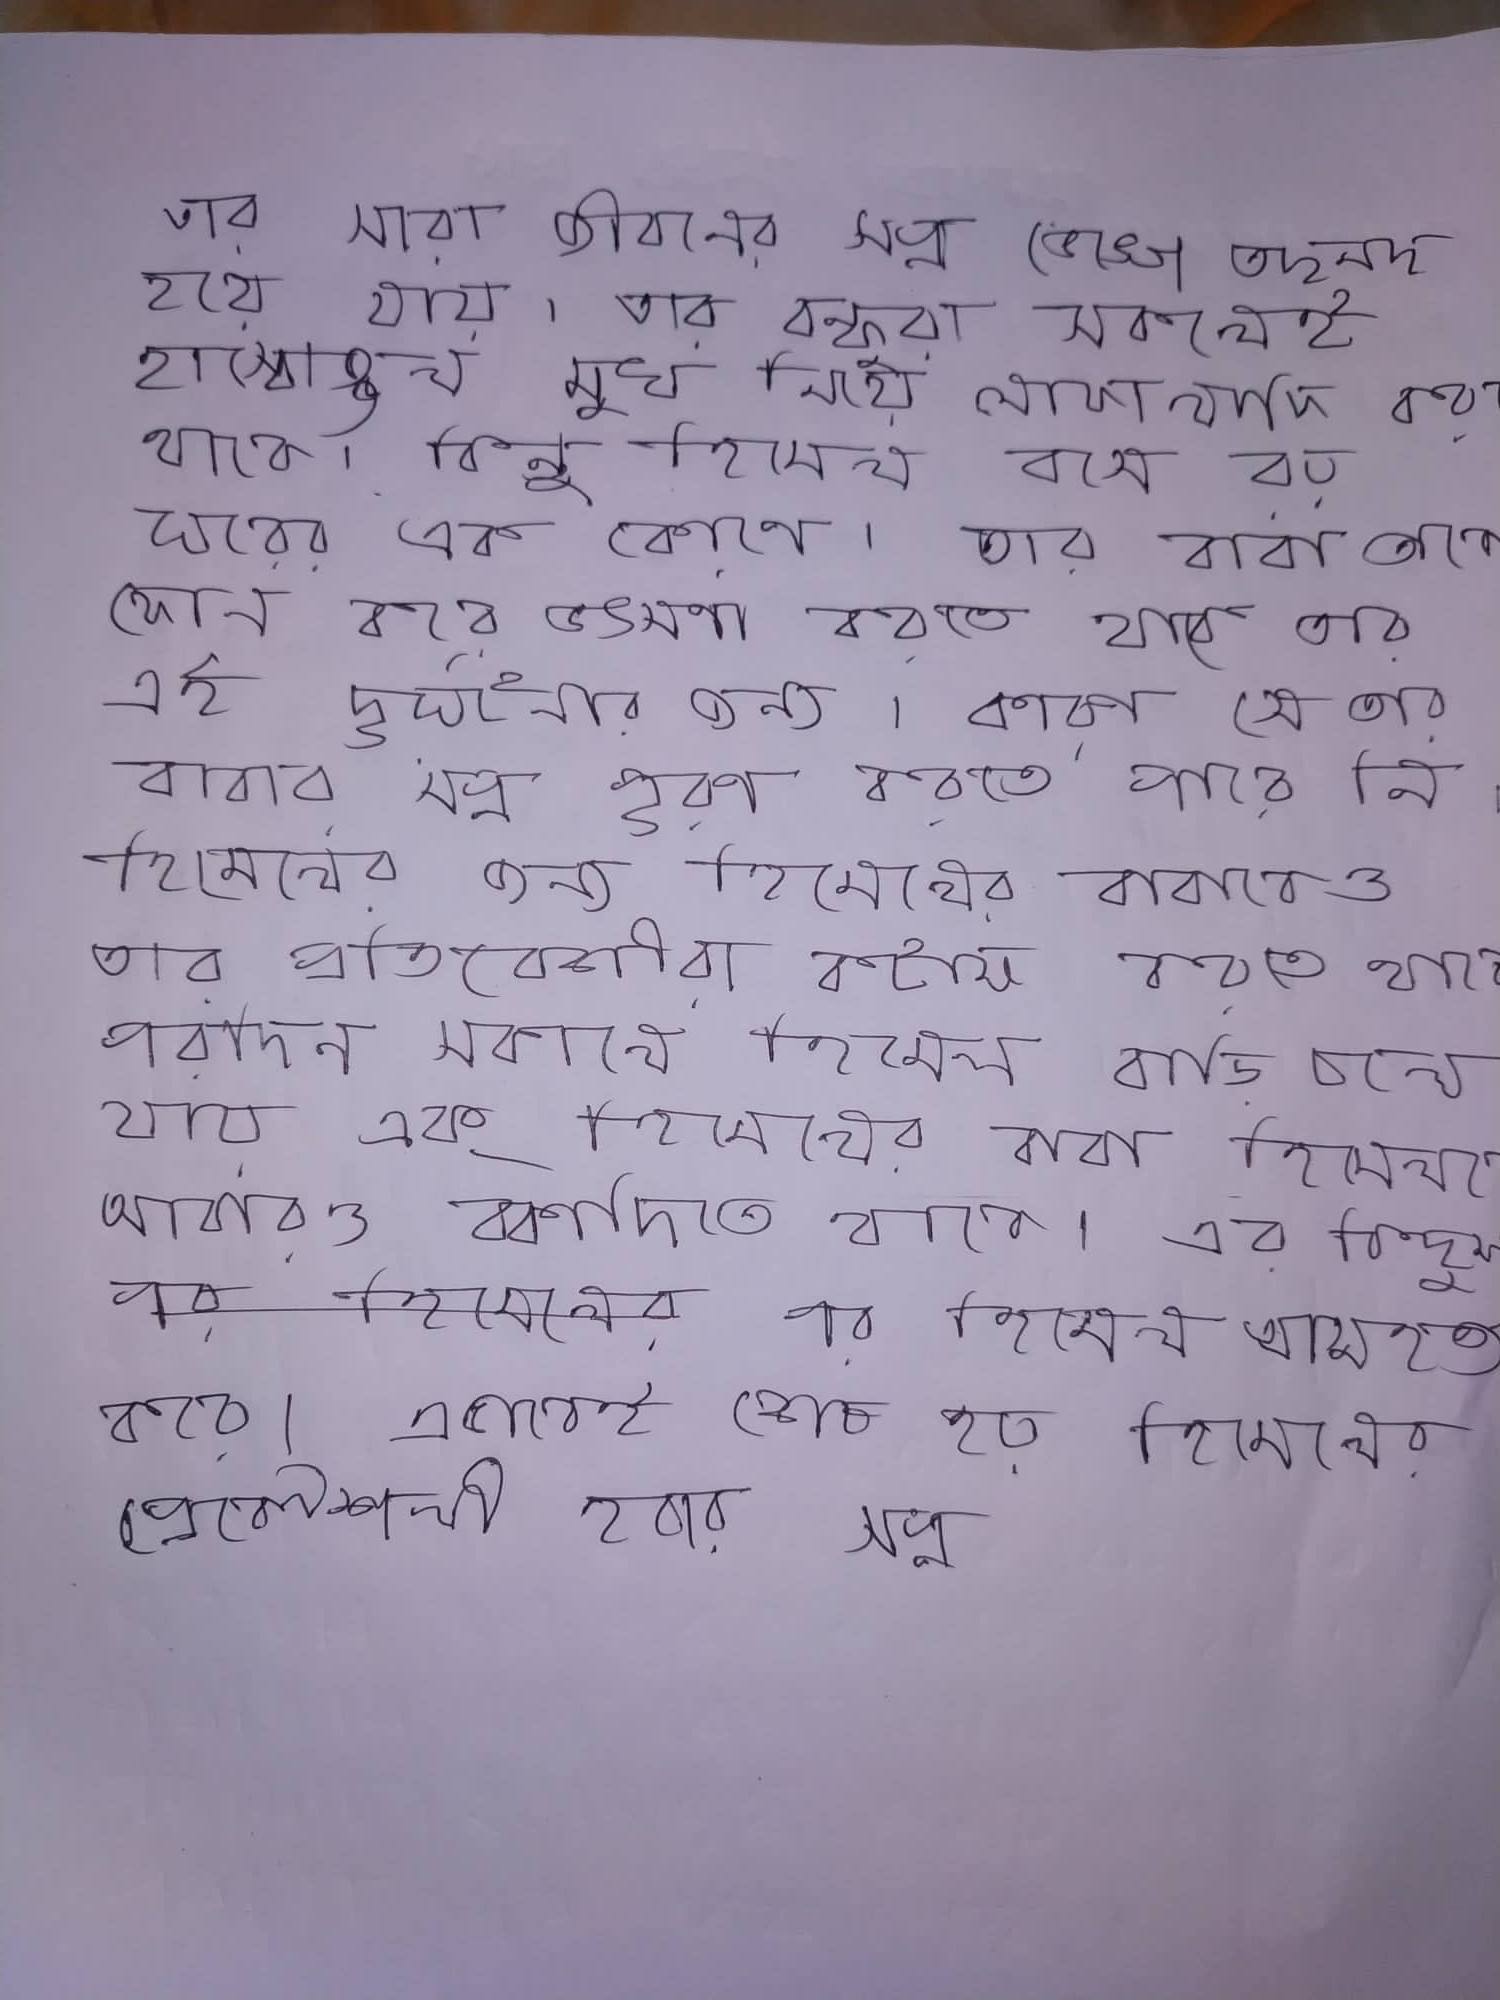 তার সারা জীবনের সপ্ন ভেঙ্গে তছনছ
হয়ে যায়। তার বন্ধুরা সকলেই
হাস্যোজ্বল মুখ নিয়ে লাফালাফি করতে
থাকে। কিন্তু হিমেল বসে রয়
ঘরের এক কোণে। তার বাবা তাকে
ফোন করে ভৎসণা করতে থাকে তার
এই দুর্ঘটনার জন্য। কারণ সে তার
বাবার সপ্ন পুরণ করতে পারে নি।
হিমেলের জন্য হিমেলের বাবাকেও
তার প্রতিবেশীরা কটাক্ষ করতে থাকে
পরদিন সকালে হিমেল বাড়ি চলে
যায় এবং হিমেলের বাবা হিমেলকে
আবারও বকাদিতে থাকে। এর কিছুক্ষ
পর হিমেলের পর হিমেল আত্মহত্যা
করে। এভাবেই শেষ হয় হিমেলের
প্রেকৌশলী হবার সপ্ন